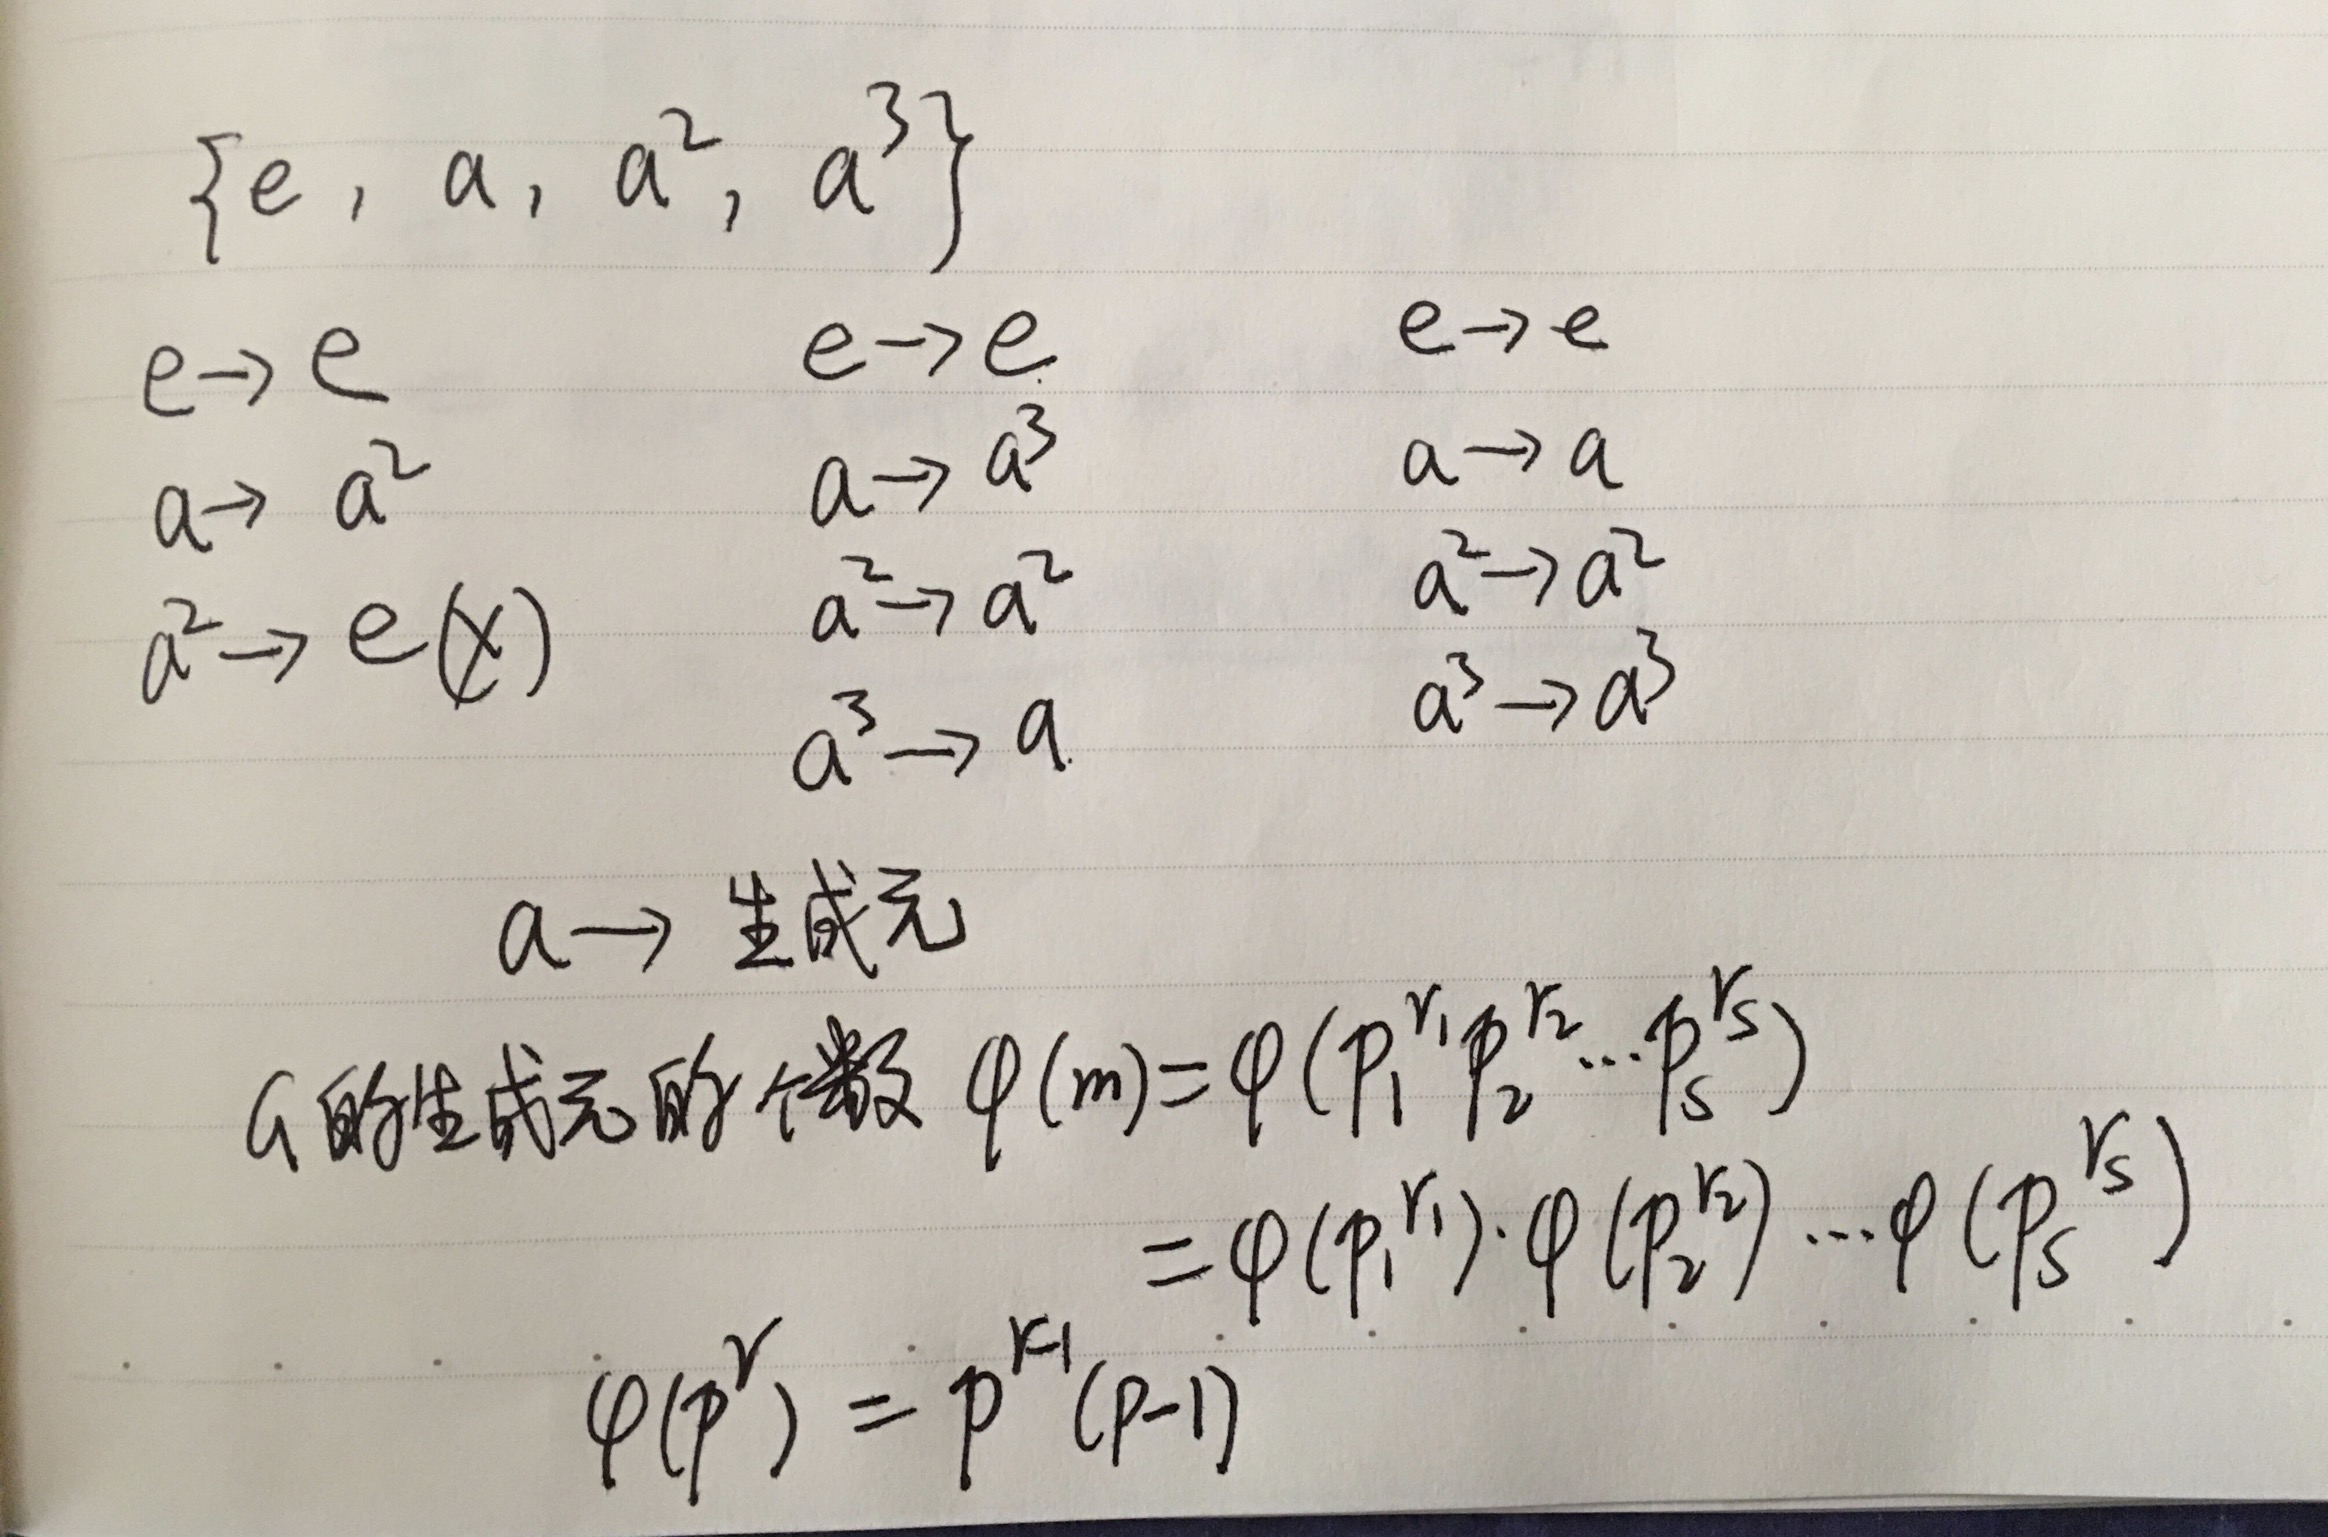 {e, a, a², a³}
e→e
a→a²
a²→e(×)
e→e
a→a³
a²→a²
a³→a
e→e
a→a
a²→a²
a³→a³
a→生成元
G的生成元的个数 φ(m)=φ(p₁^r₁ p₂^r₂ … pₛ^rₛ)
=φ(p₁^r₁)·φ(p₂^r₂)…φ(pₛ^rₛ)
φ(p^r) = p^(r-1) (p-1)